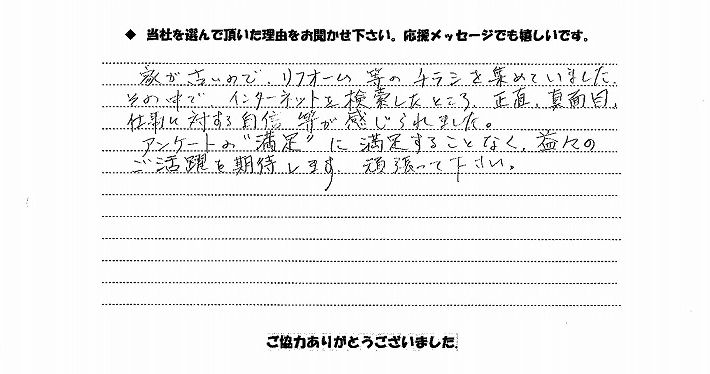 ◆ 当社を選んで頂いた理由をお聞かせ下さい。応援メッセージでも嬉しいです。
家が古いので、リフォーム等のチラシを集めていました。
その中で インターネットを検索したところ、正直、真面目、
仕事に対する自信 等が感じられました。
アンケートの"満足"に満足することなく、益々の
ご活躍を期待します。頑張って下さい。
ご協力ありがとうございました。